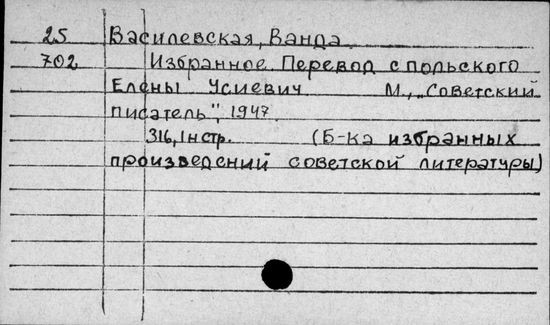 25 Василевская, Ванда.
702 Избранное. Перевод с польского
Елены Усиевич М., „Советский
писатель", 1947.
316, 1 нстр. (Б-ка избранных
произведений советской литературы)